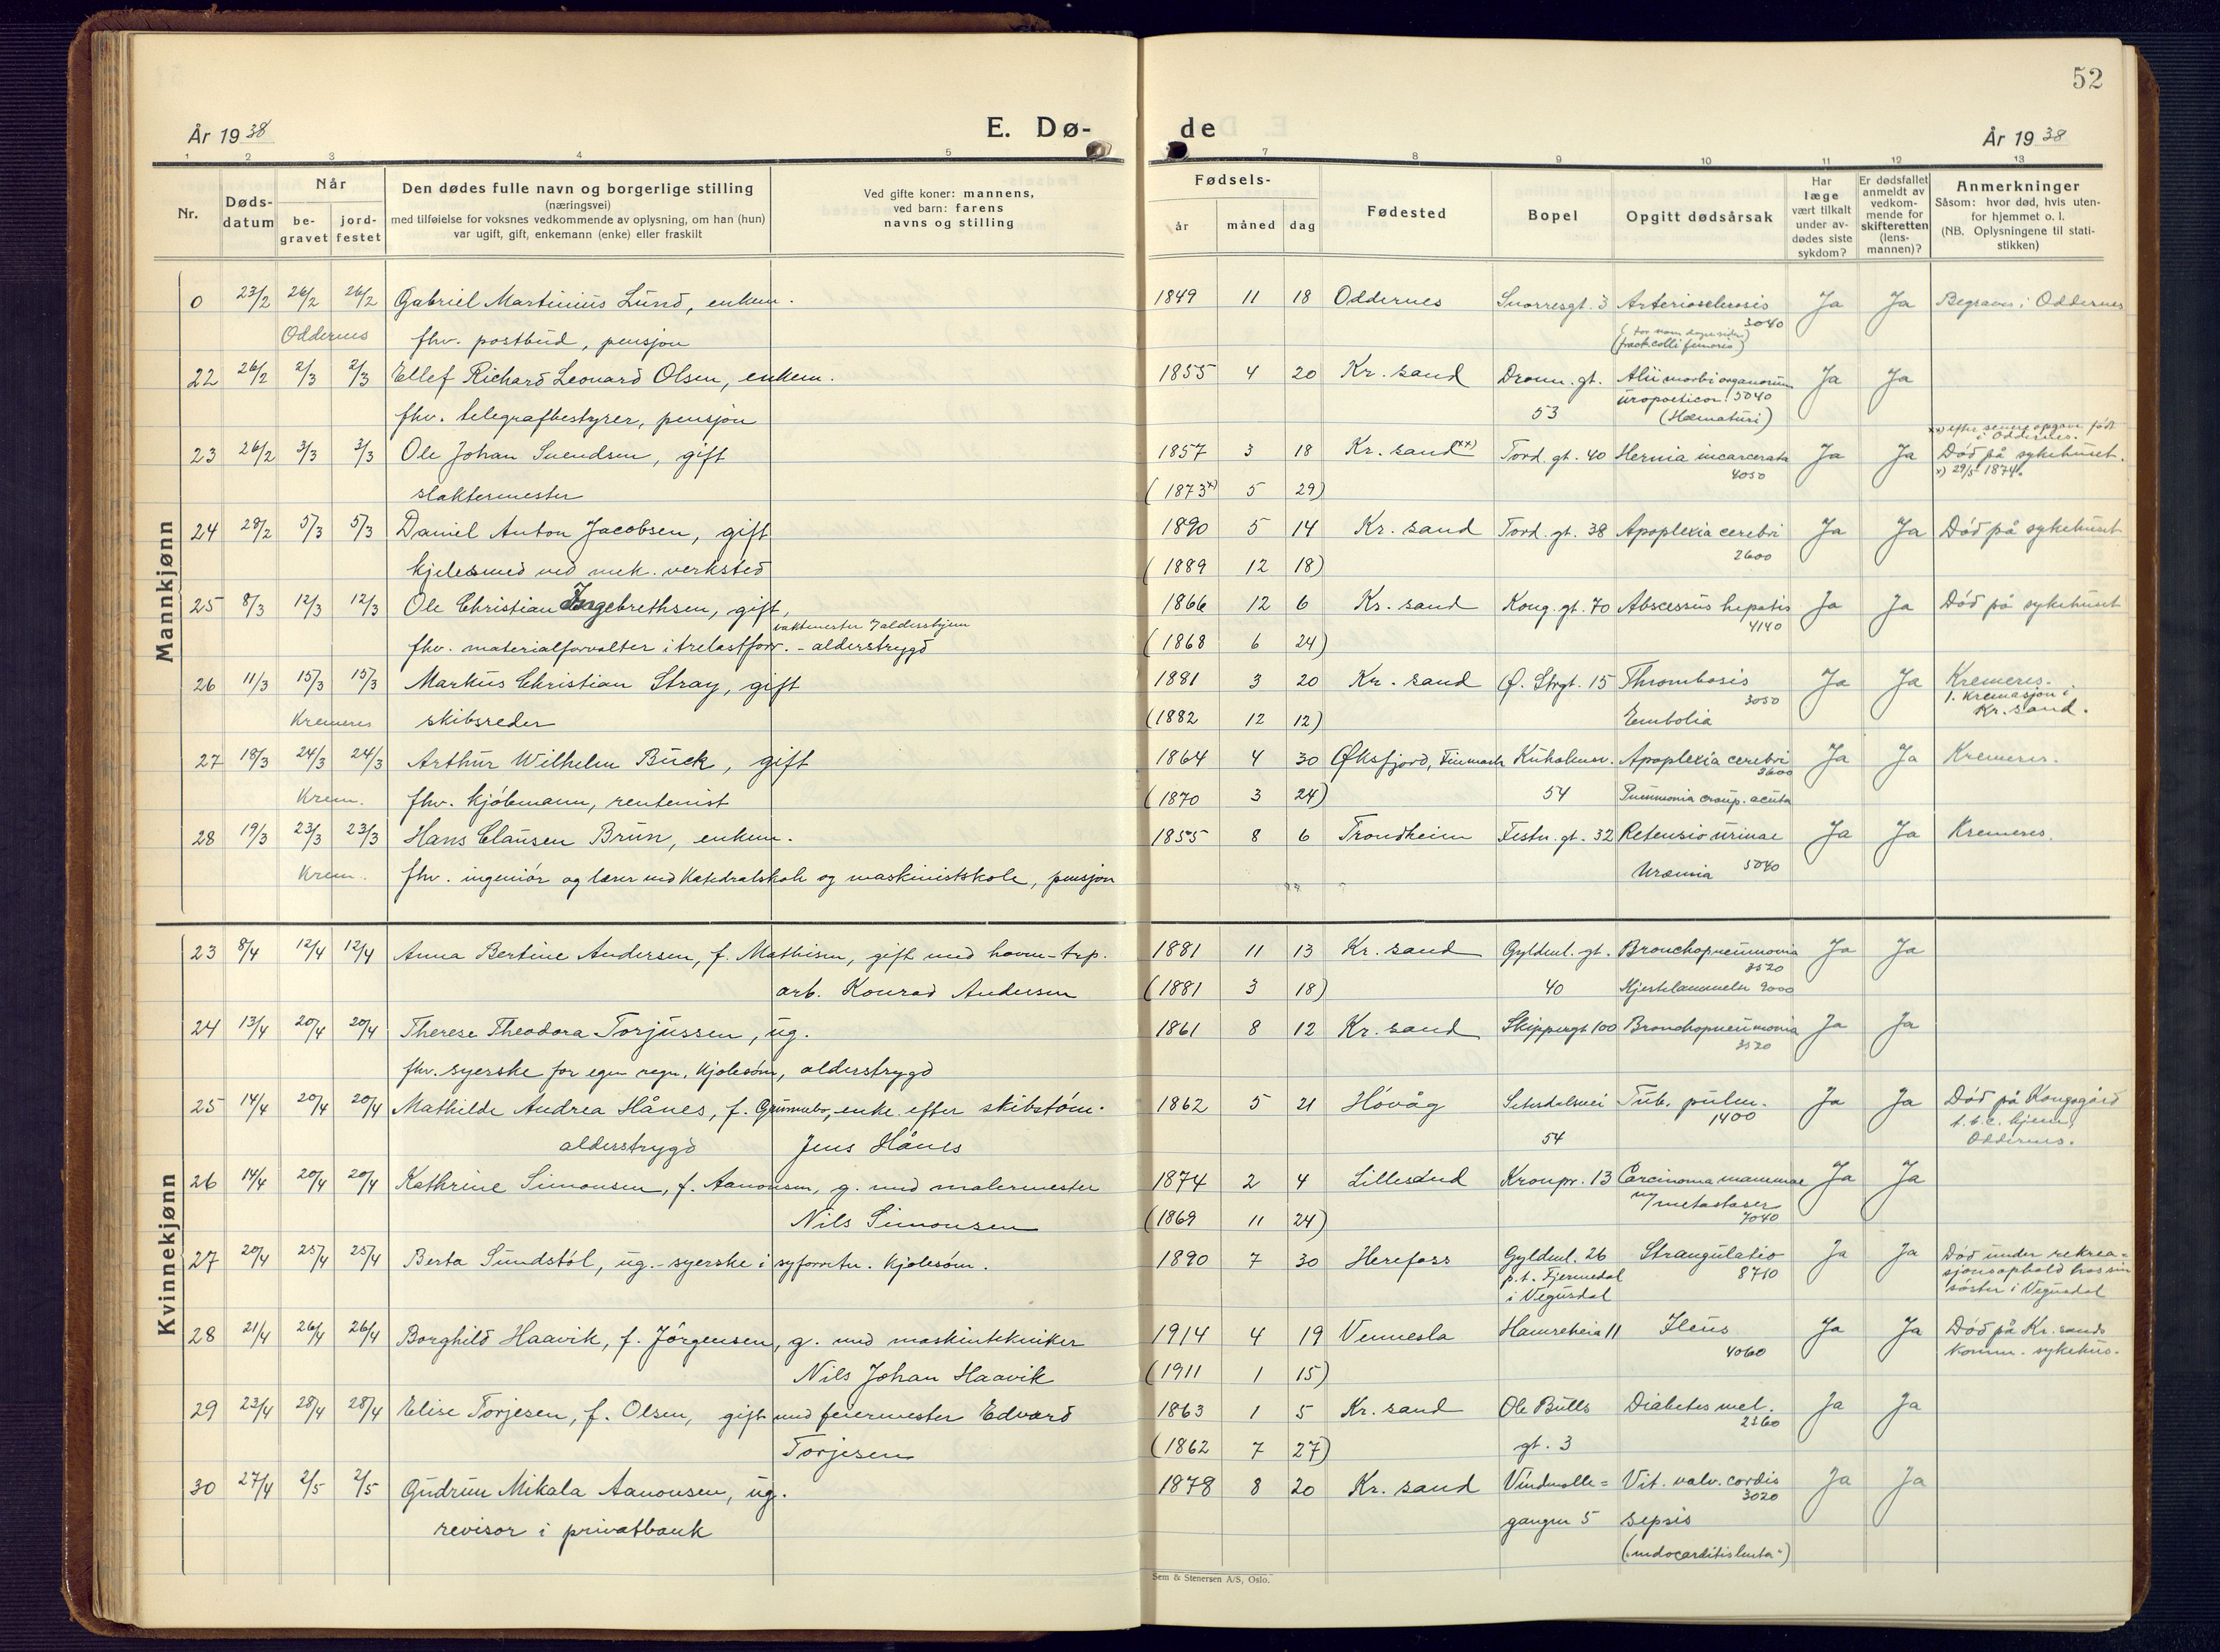 52
År 1938
E. Dø-
de
År 1938
1 2 3 4 5 7 8 9 10 11 12 13
Nr.
Døds-
datum
Når
be-
gravet
jord-
festet
Den dødes fulle navn og borgerlige stilling
(næringsvei)
med tilføielse for voksnes vedkommende av oplysning, om han (hun)
var ugift, gift, enkemann (enke) eller fraskilt
Ved gifte koner: mannens,
ved barn: farens
navns og stilling
Fødsels-
år måned dag
Fødested
Bopel
Opgitt dødsårsak
Har
læge
vært tilkalt
under av-
dødes siste
sykdom?
Er dødsfallet
anmeldt av
vedkom-
mende for
skifteretten
(lens-
mannen)?
Anmerkninger
Såsom: hvor død, hvis uten-
for hjemmet o. l.
(NB. Oplysningene til stati-
stikken)
Mannkjønn
0 23/2 26/2 26/2 Gabriel Martinius Lund, enkem. 1849 11 18 Oddernes Snorresgt. 3 Arteriosclerosis Ja Ja Begraves i Oddernes
3040
Oddernes fhv. postbud, pensjon
(fract. colli femoris)
22 26/2 2/3 2/3 Ellef Richard Leonard Olsen, enkem. 1855 4 20 Kr. sand Dronn. gt. Alii morbi organorum Ja Ja
uropoeticor. 5040
fhv. telegrafbestyrer, pensjon 53 (Hæmaturi)
xx) efter senere opgave født
i Oddernes.
23 26/2 3/3 3/3 Ole Johan Svendsen, gift 1857 3 18 Kr. sand xx) Tord. gt. 40 Hernia incarcerata Ja Ja Død på sykehuset.
4050 x) 29/5 1874.
slaktermester (1873 x) 5 29)
24 28/2 5/3 5/3 Daniel Anton Jacobsen, gift 1890 5 14 Kr. sand Tord. gt. 38 Apoplexia cerebri Ja Ja Død på sykehuset
2600
kjelesmed ved mek. verksted (1889 12 18)
25 8/3 12/3 12/3 Ole Christian Ingebrethsen, gift, 1866 12 6 Kr. sand Kong. gt. 70 Abscessus hepatis Ja Ja Død på sykehuset
vaktmester i aldershjem 4140
fhv. materialforvalter i trelastforr. - alderstrygd (1868 6 24)
26 11/3 15/3 15/3 Markus Christian Stray, gift 1881 3 20 Kr. sand Ø. Strgt. 15 Thrombosis Ja Ja Kremeres.
3050 1. kremasjon i
Kr. sand.
Kremeres skibsreder (1882 12 12) Embolia
27 18/3 24/3 24/3 Arthur Wilhelm Buck, gift 1864 4 30 Øksfjord, Finmark Kuholmsv. Apoplexia cerebri Ja Ja Kremeres.
2600
Krem. fhv. kjøbmann, rentenist (1870 3 24) 54 Pneumonia croup. acuta
28 19/3 23/3 23/3 Hans Clausen Brun, enkem. 1855 8 6 Trondheim Festn. gt. 32 Retensio urinae Ja Ja Kremeres.
Krem. fhv. ingeniør og lærer ved Katedralskole og maskinistskole, pensjon Uræmia 5040
Kvinnekjønn
23 8/4 12/4 12/4 Anna Bertine Andersen, f. Mathisen, gift med havn-trp. 1881 11 13 Kr. sand Gyldenl. gt. Bronchopneumonia Ja Ja
3520
arb. Konrad Andersen (1881 3 18) 40 Hjertelammelse 9000
24 13/4 20/4 20/4 Therese Theodora Torjussen, ug. 1861 8 12 Kr. sand Skippergt. 100 Bronchopneumonia Ja Ja
3520
fhv. syerske for egen regn. kjolesøm, alderstrygd
25 14/4 20/4 20/4 Mathilde Andrea Hånes, f. Grumsbo, enke efter skibstøm. 1862 5 21 Høvåg Setesdalsvei Tub. pulm. Ja Ja Død på Kongsgård
1400 t.b.c. hjem,
alderstrygd Jens Hånes 54 Oddernes.
26 14/4 20/4 20/4 Kathrine Simonsen, f. Aanonsen, g. med malermester 1874 2 4 Lillesand Kronpr. 13 Carcinoma mammae Ja Ja
m/metastaser
Nils Simonsen (1869 11 24) 7040
27 20/4 25/4 25/4 Berta Sundstøl, ug. - syerske i syforretn. kjolesøm. 1890 7 30 Herefoss Gyldenl. 26 Strangulatio Ja Ja Død under rekrea=
p.t. Fjermedal 8710 sjonsophold hos sin
i Vegusdal søster i Vegusdal
28 21/4 26/4 26/4 Borghild Haavik, f. Jørgensen, g. med maskintekniker 1914 4 19 Vennesla Hamreheia 11 Ileus Ja Ja Død på Kr. sands
4060 komm. sykehus.
Nils Johan Haavik (1911 1 15)
29 23/4 28/4 28/4 Elise Torjesen, f. Olsen, gift med feiermester Edvard 1863 1 5 Kr. sand Ole Bulls Diabetes mel. Ja Ja
2360
Torjesen (1862 7 27) gt. 3
30 27/4 2/5 2/5 Gudrun Mikala Aanonsen, ug. 1878 8 20 Kr. sand Vindmølle= Vit. valv. cordis Ja Ja
3020
revisor i privatbank gangen 5 sepsis
("endocarditis lenta")
Sem & Stenersen A/S, Oslo.